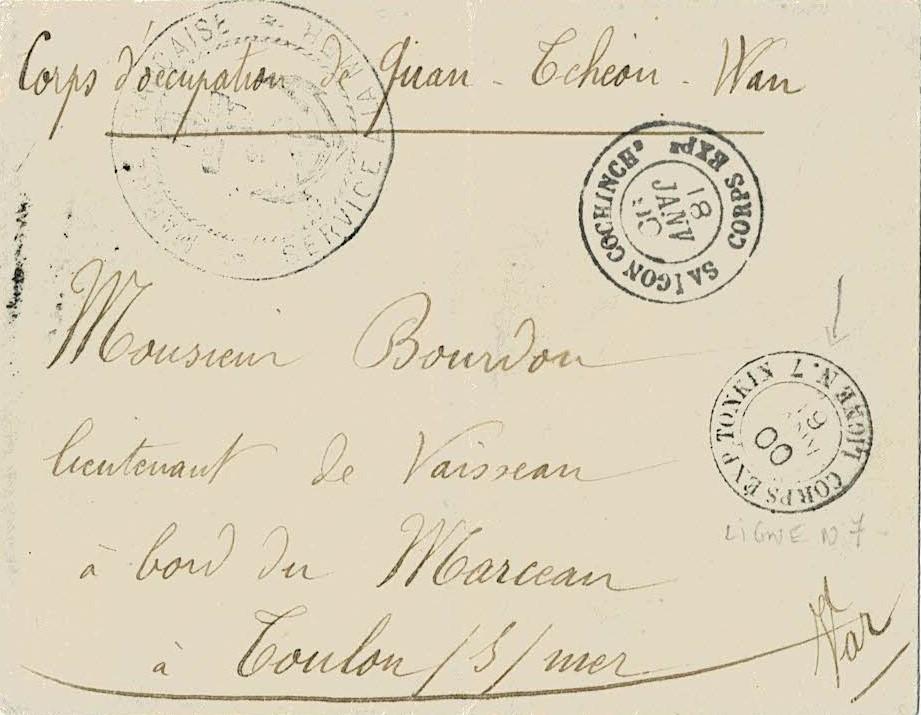 Corps d'occupation de Quan-Tchéou-Wan
SERVICE A LA MER
SAIGON COCHINCH^E CORPS EXP^RE
18
JANV
00
Monsieur Bourdon
CORPS EXP. TONKIN LIGNE N. 7
19
00
lieutenant de Vaisseau
LIGNE N 7
à bord du Marceau
à Toulon /S/ mer
Var